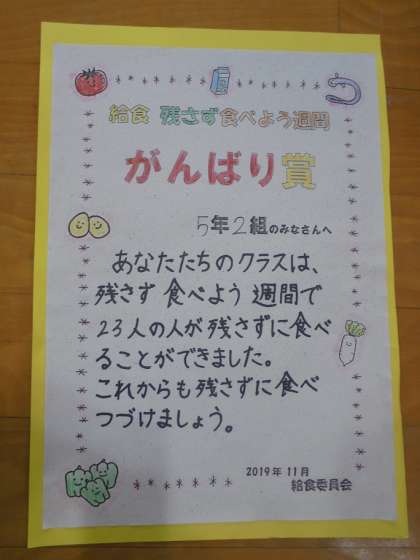 給食 残さず食べよう週間
がんばり賞
5年2組のみなさんへ
あなたたちのクラスは、
残さず食べよう週間で
23人の人が残さずに食べ
ることができました。
これからも残さずに食べ
つづけましょう。
2019年11月
給食委員会